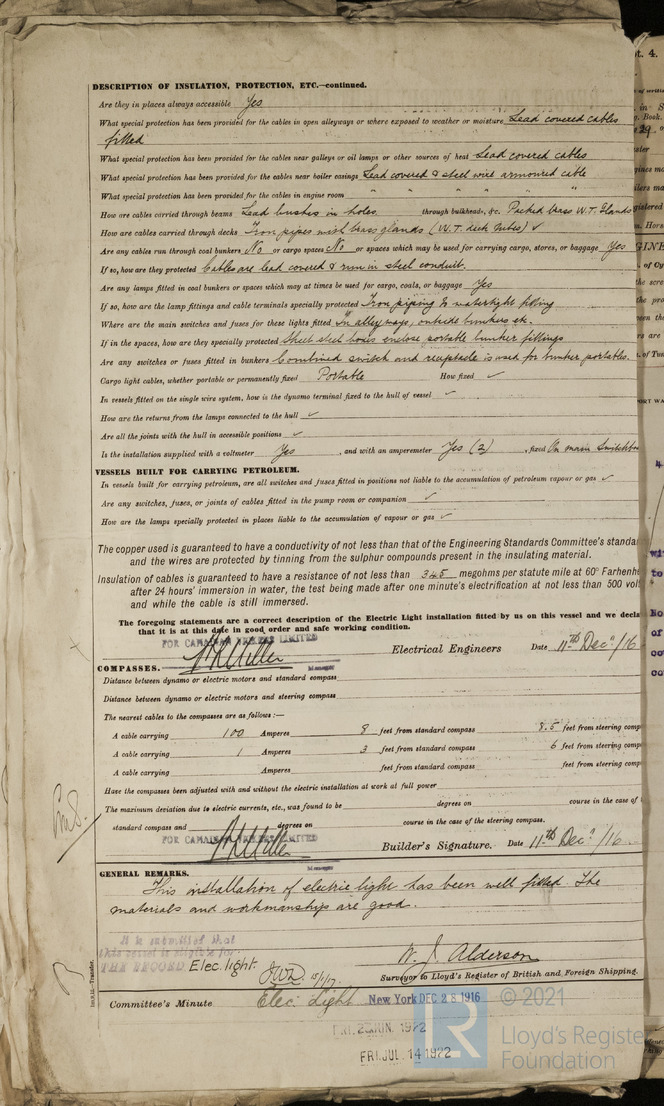 DESCRIPTION OF INSULATION, PROTECTION, ETC.—continued.
Are they in places always accessible Yes
What special protection has been provided for the cables in open alleyways or where exposed to weather or moisture Lead covered cables
fitted
What special protection has been provided for the cables near galleys or oil lamps or other sources of heat Lead covered cables
What special protection has been provided for the cables near boiler casings Lead covered & steel wire armoured cable
What special protection has been provided for the cables in engine room " " " " "
How are cables carried through beams Lead bushes in holes. through bulkheads, &c. Packed brass W.T. Glands
How are cables carried through decks Iron pipes with brass glands (W.T. deck tubes) ✓
Are any cables run through coal bunkers No or cargo spaces No or spaces which may be used for carrying cargo, stores, or baggage Yes
If so, how are they protected Cables are lead covered & run in steel conduit.
Are any lamps fitted in coal bunkers or spaces which may at times be used for cargo, coals, or baggage Yes
If so, how are the lamp fittings and cable terminals specially protected Iron piping & watertight fitting
Where are the main switches and fuses for these lights fitted In alleyways, outside bunkers etc.
If in the spaces, how are they specially protected Sheet steel boxes enclose portable bunker fittings
Are any switches or fuses fitted in bunkers Combined switch and receptacle is used for bunker portables.
Cargo light cables, whether portable or permanently fixed Portable How fixed ✓
In vessels fitted on the single wire system, how is the dynamo terminal fixed to the hull of vessel ✓
How are the returns from the lamps connected to the hull ✓
Are all the joints with the hull in accessible positions ✓
Is the installation supplied with a voltmeter Yes , and with an amperemeter Yes (2) , fixed On main Switchbo
VESSELS BUILT FOR CARRYING PETROLEUM.
In vessels built for carrying petroleum, are all switches and fuses fitted in positions not liable to the accumulation of petroleum vapour or gas ✓
Are any switches, fuses, or joints of cables fitted in the pump room or companion ✓
How are the lamps specially protected in places liable to the accumulation of vapour or gas ✓
The copper used is guaranteed to have a conductivity of not less than that of the Engineering Standards Committee's standa
and the wires are protected by tinning from the sulphur compounds present in the insulating material.
Insulation of cables is guaranteed to have a resistance of not less than 345 megohms per statute mile at 60° Farhenhe
after 24 hours' immersion in water, the test being made after one minute's electrification at not less than 500 volt
and while the cable is still immersed.
The foregoing statements are a correct description of the Electric Light installation fitted by us on this vessel and we decla
that it is at this date in good order and safe working condition.
FOR CANADIAN VICKERS LIMITED
Miller Electrical Engineers Date 11th Dec. /16
Manager
COMPASSES.
Distance between dynamo or electric motors and standard compass
Distance between dynamo or electric motors and steering compass
The nearest cables to the compasses are as follows:—
A cable carrying 100 Amperes 8 feet from standard compass 8.5 feet from steering comp
A cable carrying 1 Amperes 3 feet from standard compass 6 feet from steering comp
A cable carrying Amperes feet from standard compass feet from steering comp
Have the compasses been adjusted with and without the electric installation at work at full power
The maximum deviation due to electric currents, etc., was found to be degrees on course in the case of
standard compass and degrees on course in the case of the steering compass.
FOR CANADIAN VICKERS LIMITED
Miller Builder's Signature. Date 11th Dec. /16
GENERAL REMARKS.
This installation of electric light has been well fitted. The
materials and workmanship are good.
It is submitted that
this vessel is eligible for
THE RECORD. Elec. light. JWD. 15/1/17.
W. J. Alderson
Surveyor to Lloyd's Register of British and Foreign Shipping.
Committee's Minute Elec. Light New York DEC 28 1916
FRI. 2 JUN. 1972
FRI. JUL. 14 1922
LR
© 2021
Lloyd's Registe
Foundation